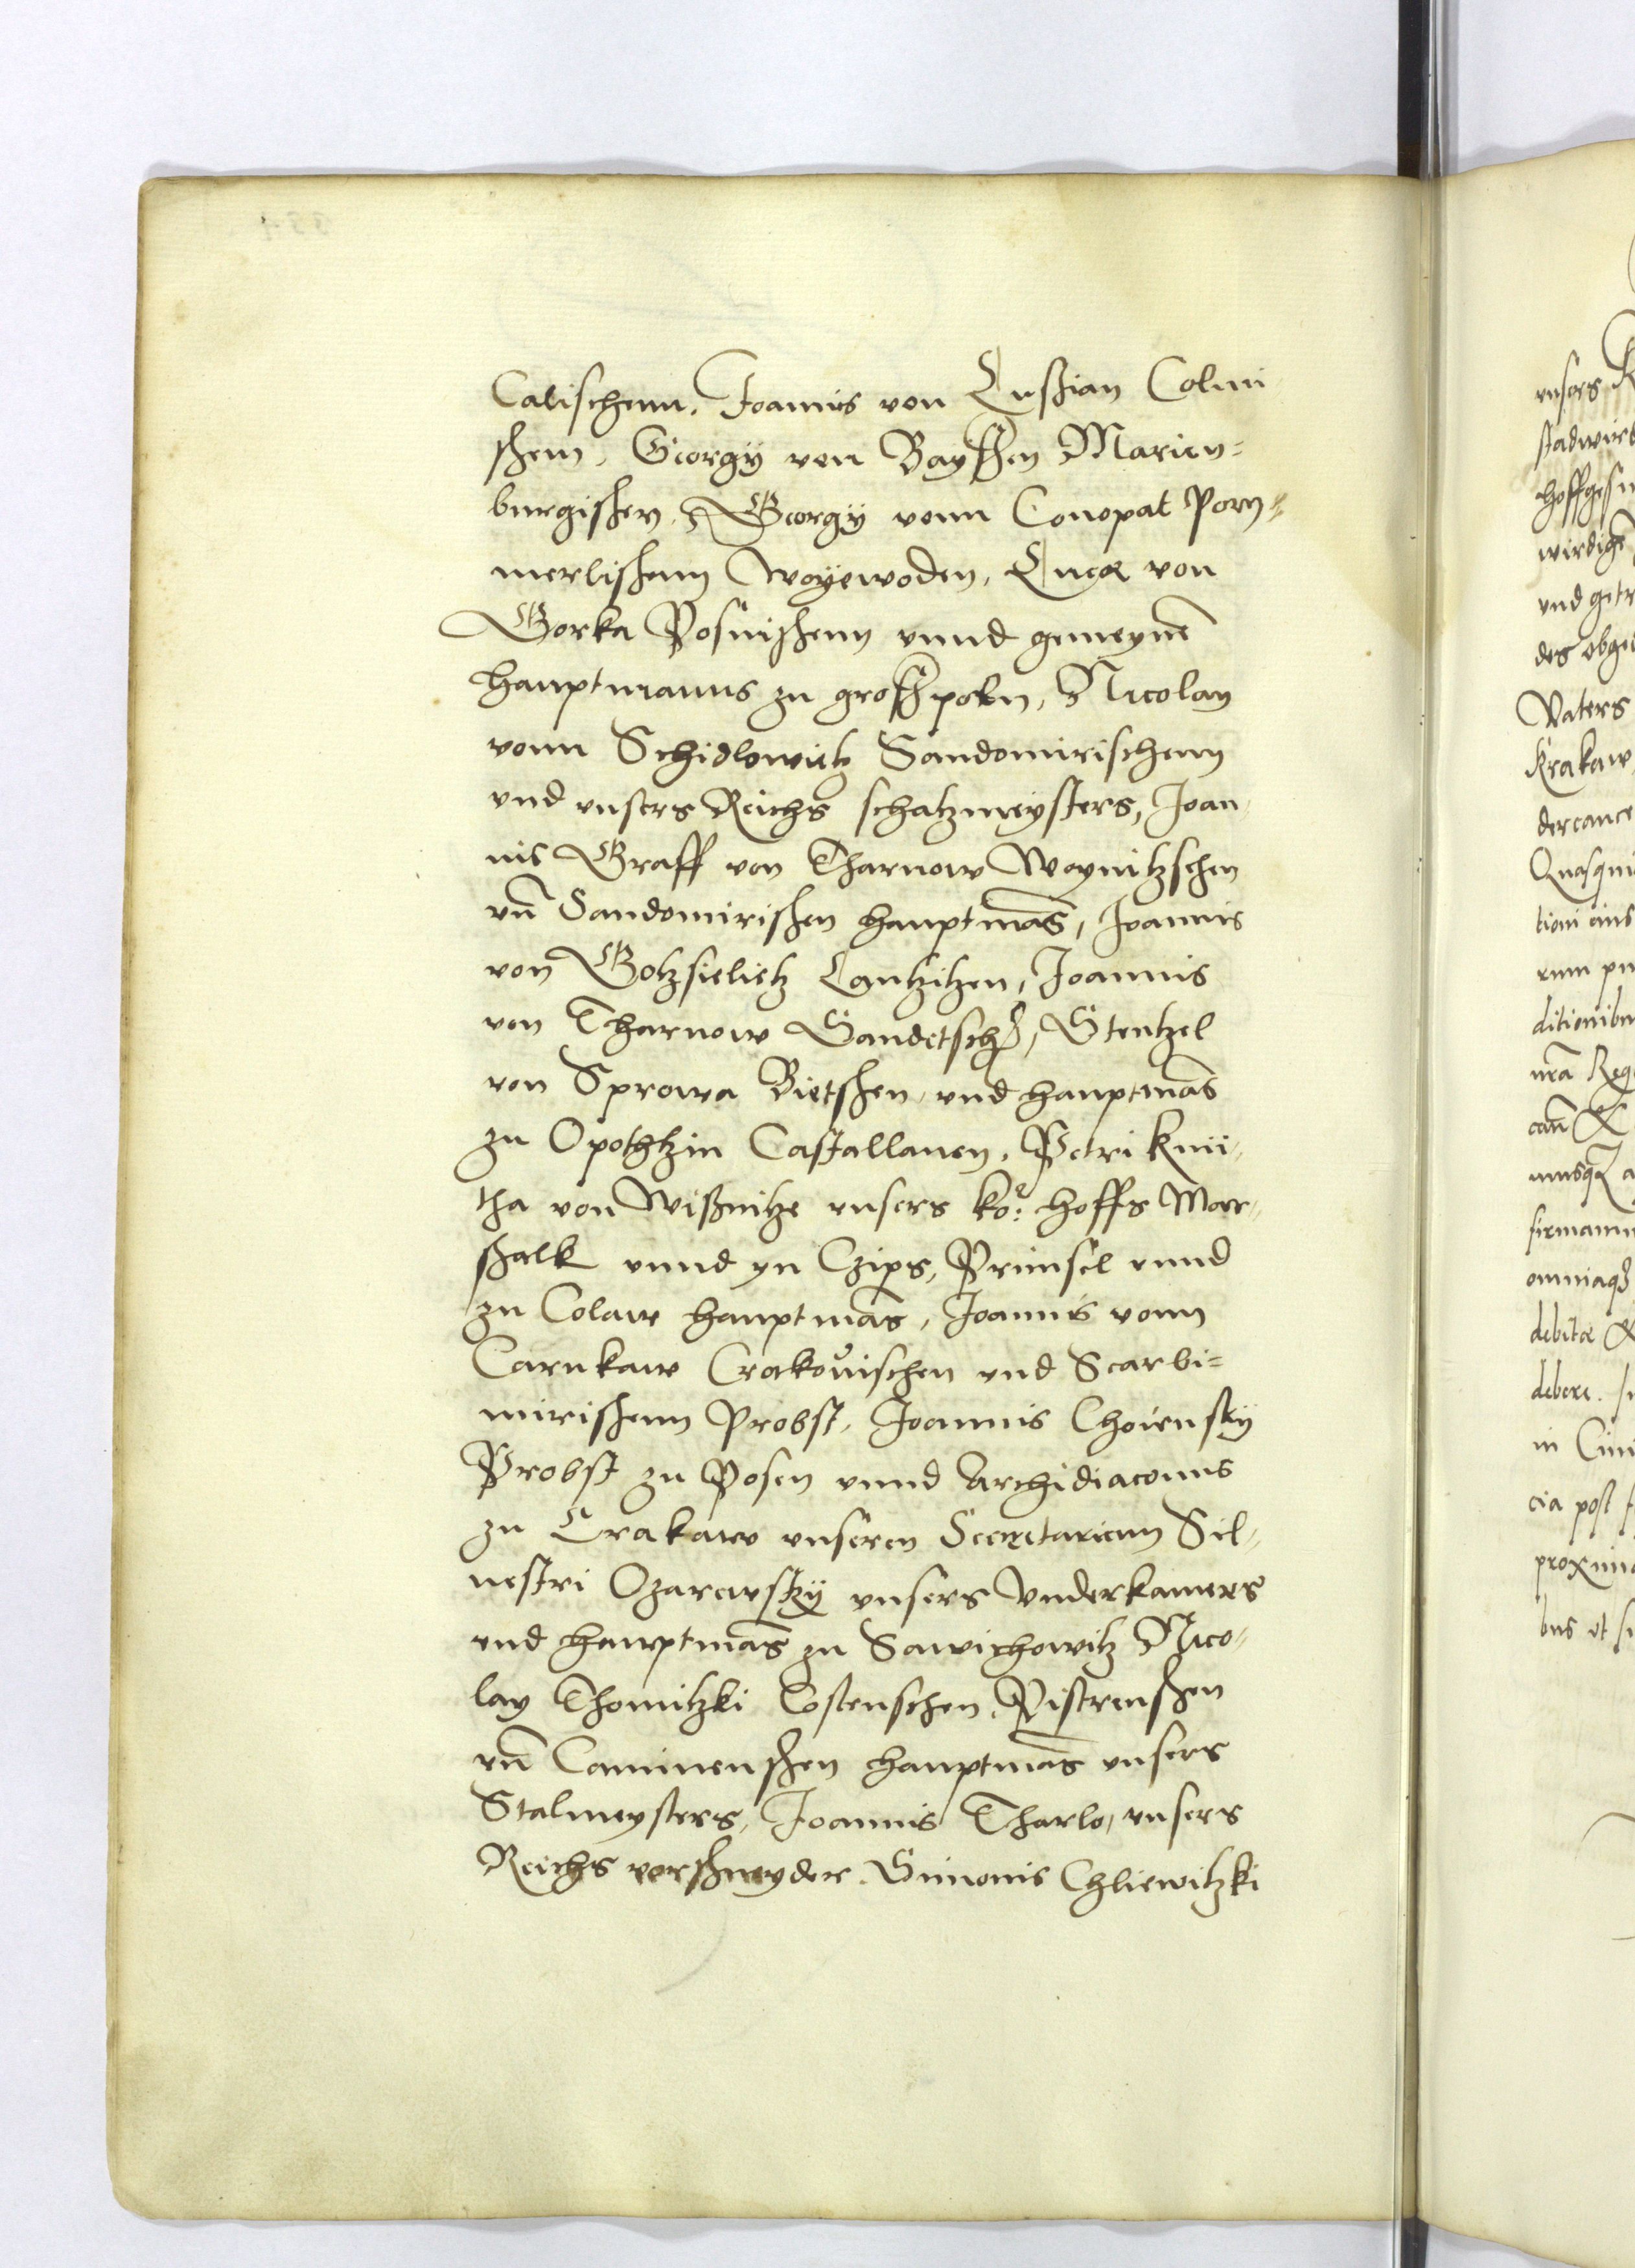 Calischenn, Joannis von Lussian Colmi
schenn, Georgÿ von Bayssen Marien=
burgischen, Georgÿ vonn Conopat Pom=
merlischenn Woÿewoden, Lucæ von
Gorka Posnischenn vnnd gemeynē
hauptmanns zu grosspoln, Nicolay
vonn Schidlowietz Sandomirischenn
vnd vnsers Reichs schatzmeysters, Joan
nis Graff von Tharnow Woynitzschen
vn̄ Sandomirischen hauptmās, Joannis
von Gotzsielietz Lantzitzen, Joannis
von Tharnow Sandetsch, Stentzel
von Sprowa Bietschen vnd hauptmās
zu Opothtzin Castallanen, Petri Kmi
tha von Wissnitze vnsers ko: hoffs Mar
schalk vnnd yn Czips, Primsel vnnd
zu Colaw hauptmās, Joannis vonn
Carnkaw Crakouischen vnd Scarbi=
mirischenn Probst, Joannis Choiensky
Probst zu Posen vnnd Archidiaconus
zu Crakaw vnseren Secretarienn Sil
uestri Ozarowskÿ vnsers Vnderkamers
vnd hauptmās zu Sawichowitz Nico
lay Thomitzki Costenschen, Pistrenschen
vn̄ Caminenschen hauptmās vnsers
Stalmeysters, Joannis Tharlo, vnsers
Reichs vorschneyder Simonis Chliewitzki
vnsers
hoffgesin
wirdigē
vnd getr
des obge
Vaters
Krakaw
dercance
tioni eius
ditionibu
nrā Reg
firmamu
omniaqȝ
debitæ &
debere. In
in Ciui
cia post f
proxima
bus et si